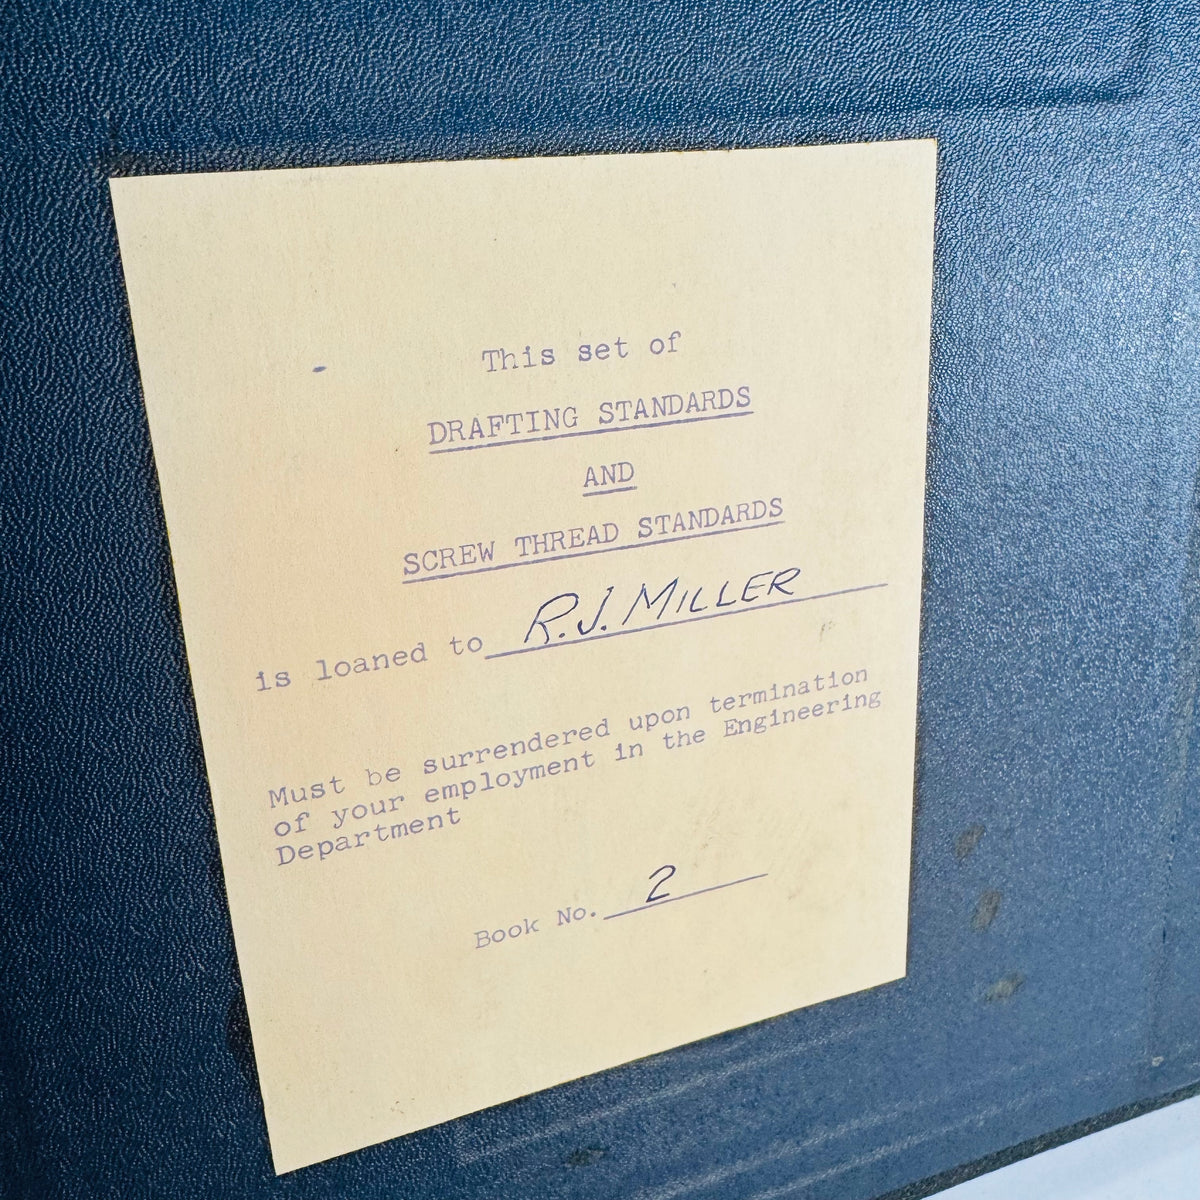 This set of
DRAFTING STANDARDS
AND
SCREW THREAD STANDARDS
is loaned to R.J. MILLER
Must be surrendered upon termination
of your employment in the Engineering
Department
Book No. 2